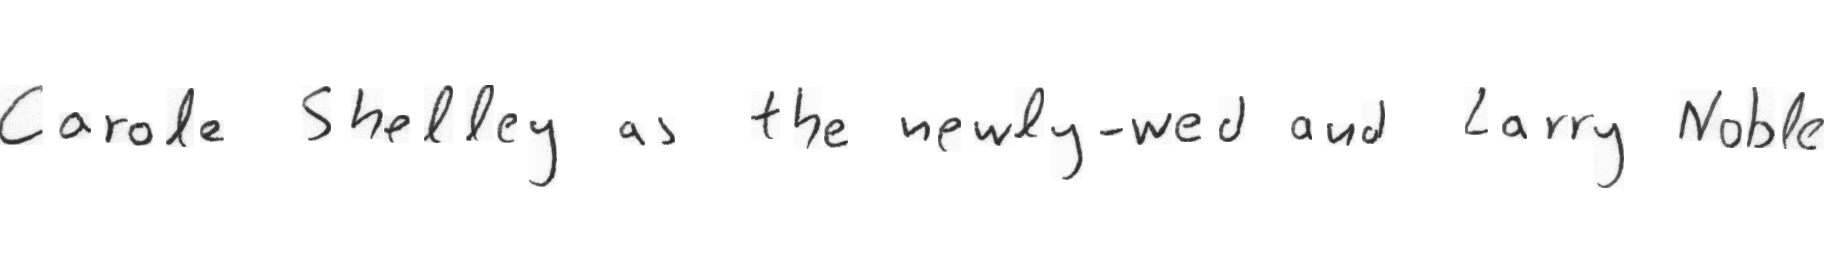 Carole Shelley as the newly-wed and Larry Noble